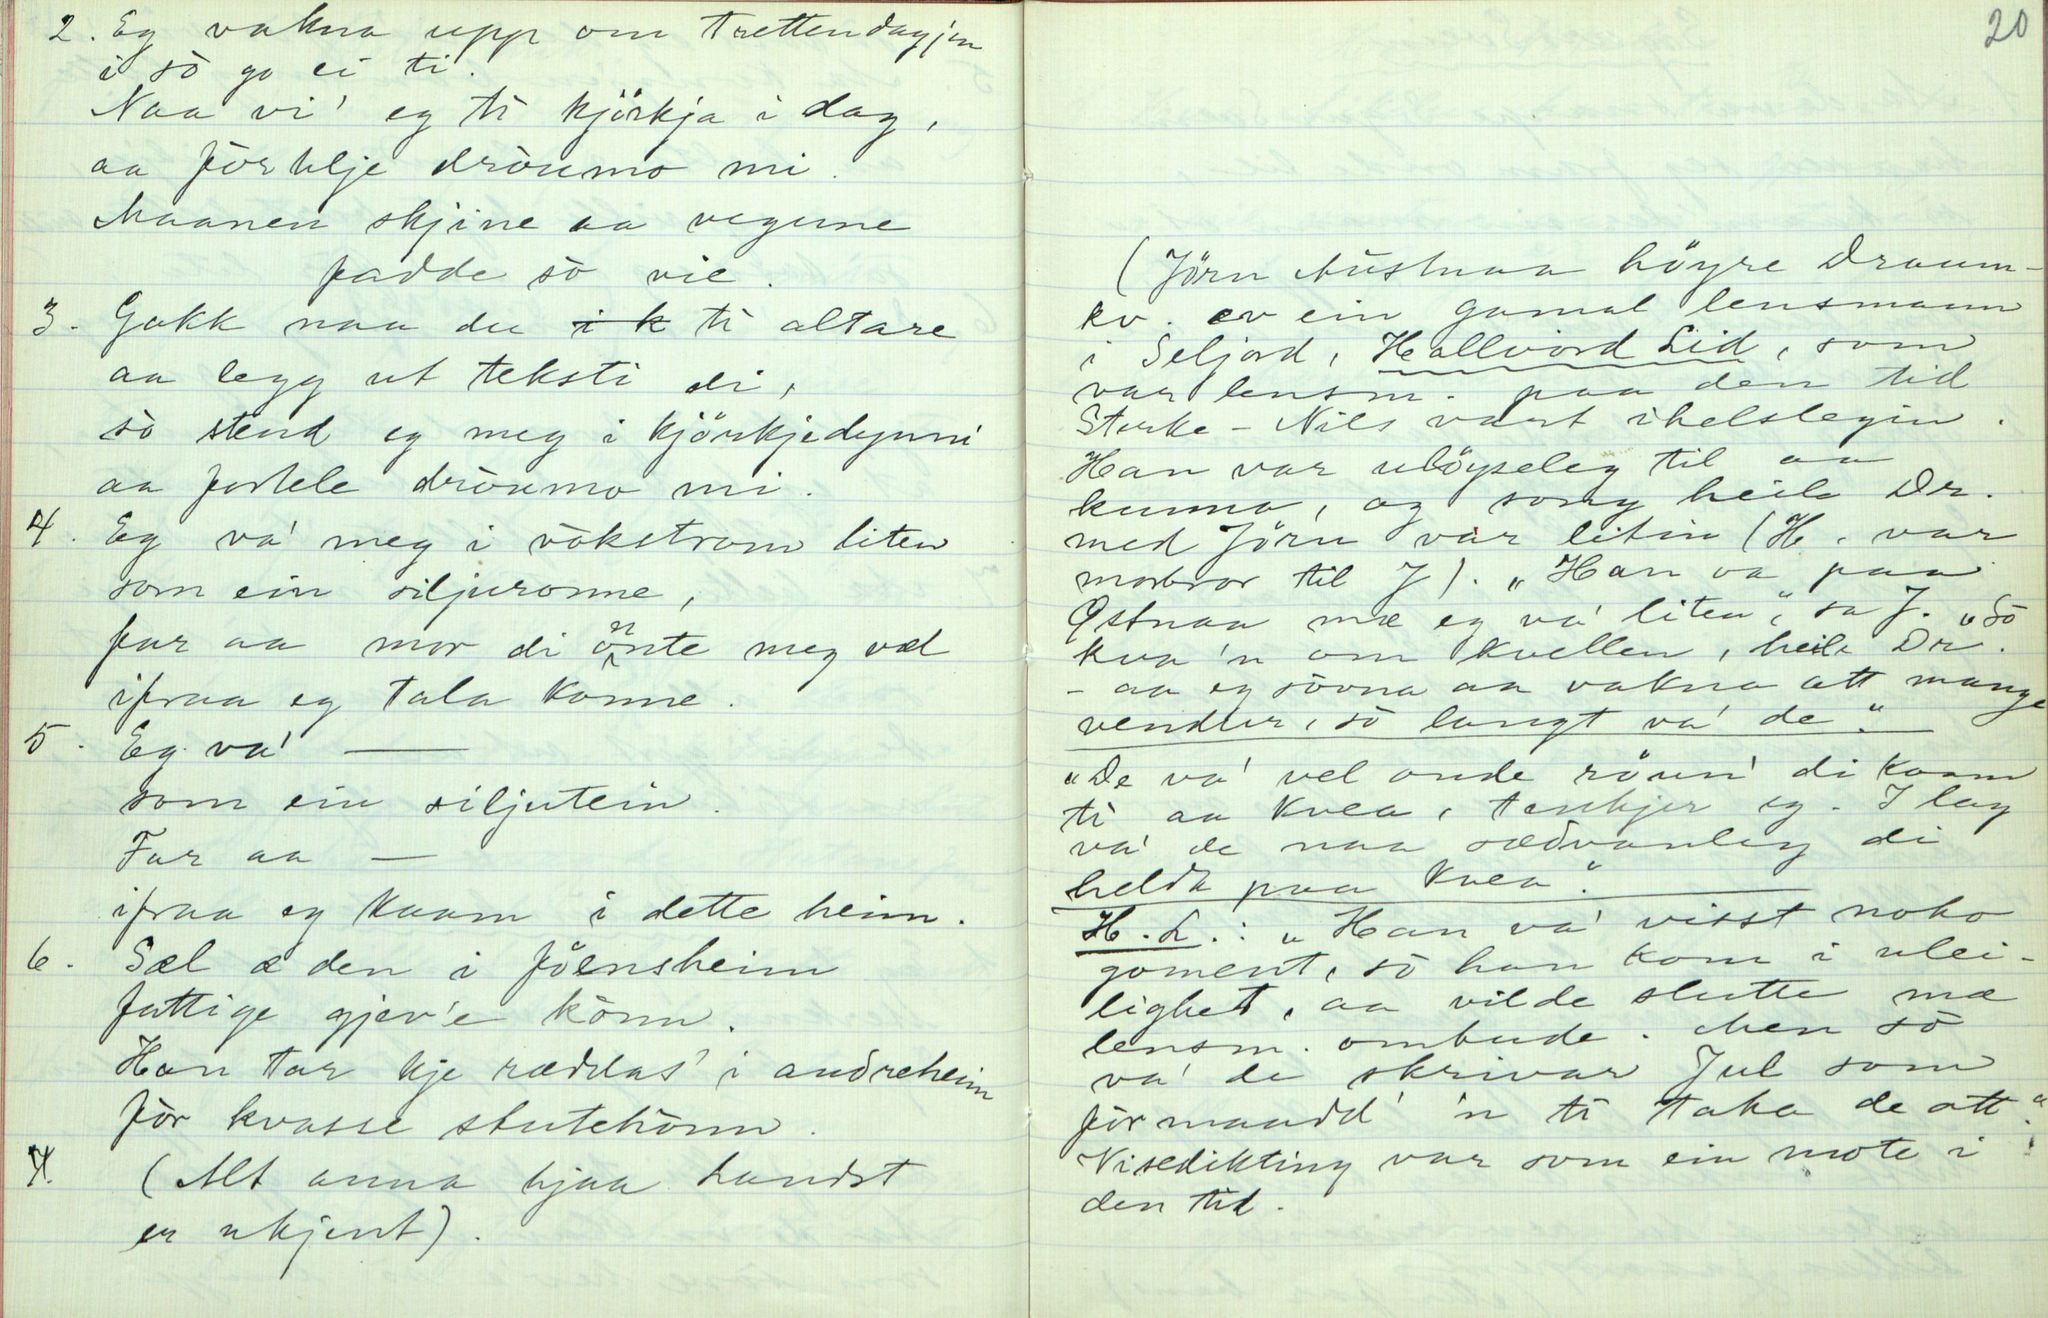 2. Eg vakna upp om trettendagjen
i sò go ei ti.
Naa vi' eg ti kjörkja i dag,
aa förtelje dròumo mi.
Maanen skjine aa vegjine
fadde sò vie.
3. Gakk naa du i k ti altare
aa legg ut teksti di,
sò stend eg meg i kjörkjedynni
aa fortele dròumo mi.
4. Eg va' meg i vòkstrom liten
som ein siljuronne,
far aa mor di önte meg vel
ifraa eg tala konne.
5. Eg va' —
som ein siljutein.
Far aa —
ifraa eg kaam i dette heim.
6. Sæl æ den i föensheim
fattige gjev'e könn.
Han tar kje ræddas' i andreheim
för kvasse stutehònn.
7. (Alt anna hjaa Landst
er ukjent).
20
(Jörn Austnaa höyre Draum-
kv. av ein gamal lensmann
i Seljord, Hallvord Lid, som
var lensm. paa den tid
Sterke-Nils vart ihelslegin.
Han var ulöyseleg til aa
kunna, og song heile Dr.
med Jörn var litin (H. var
morbror til J). "Han va paa
Östnaa mæ eg va' liten", sa J. "Sò
kva'n om kvellen, heile Dr.
- aa eg sòvna aa vakna att mange
vendur, sò langt va' de."
"De va' vel onde röuni di kaam
ti aa kvea, tenkjer eg. I lag
va' de naa sædvanleg di
heldt paa kvea."
H. L.: "Han va' visst noko
goment, sò han kom i ulei-
lighet, aa vilde slutte mæ
lensm. ombude. Men sò
va' de skrivar Jul som
förmaadd' 'n ti taka de att."
Visedikting var som ein mote i
den tid.